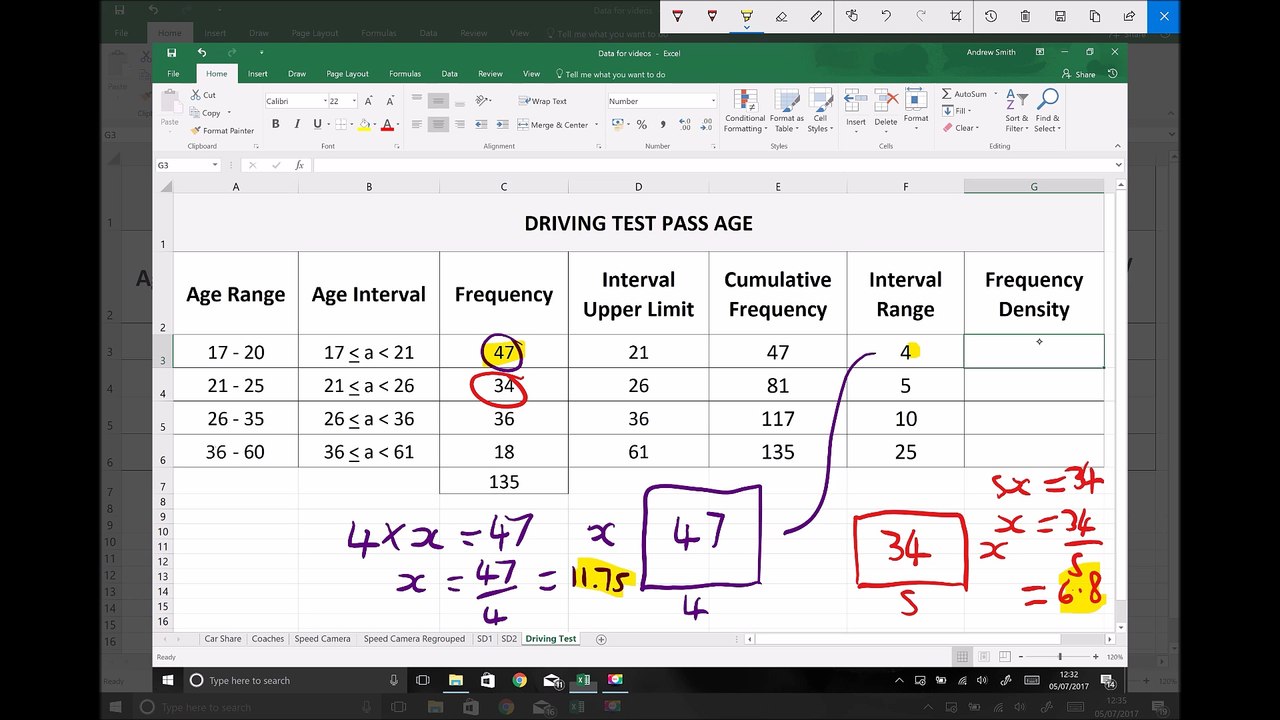 Data for videos - Excel
Andrew Smith
File Home Insert Draw Page Layout Formulas Data Review View Tell me what you want to do Share
Paste Cut Copy Format Painter Clipboard
Calibri 22 B I U Font
Wrap Text Merge & Center Alignment
Number % Number
Conditional Formatting Format as Table Cell Styles Styles
Insert Delete Format Cells
AutoSum Fill Clear Sort & Filter Find & Select Editing
G3 fx
A B C D E F G
1 DRIVING TEST PASS AGE
2 Age Range Age Interval Frequency Interval Upper Limit Cumulative Frequency Interval Range Frequency Density
3 17 - 20 17 ≤ a < 21 47 21 47 4
4 21 - 25 21 ≤ a < 26 34 26 81 5
5 26 - 35 26 ≤ a < 36 36 36 117 10
6 36 - 60 36 ≤ a < 61 18 61 135 25
7 135
8
9
10
11
12
13
14
15
16
4 × x = 47
x = 47/4 = 11.75
x 47
4
34 x
5
5x = 34
x = 34/5
= 6.8
Car Share Coaches Speed Camera Speed Camera Regrouped SD1 SD2 Driving Test
Ready 120%
Type here to search 12:32
05/07/2017
Type here to search 12:35
05/07/2017